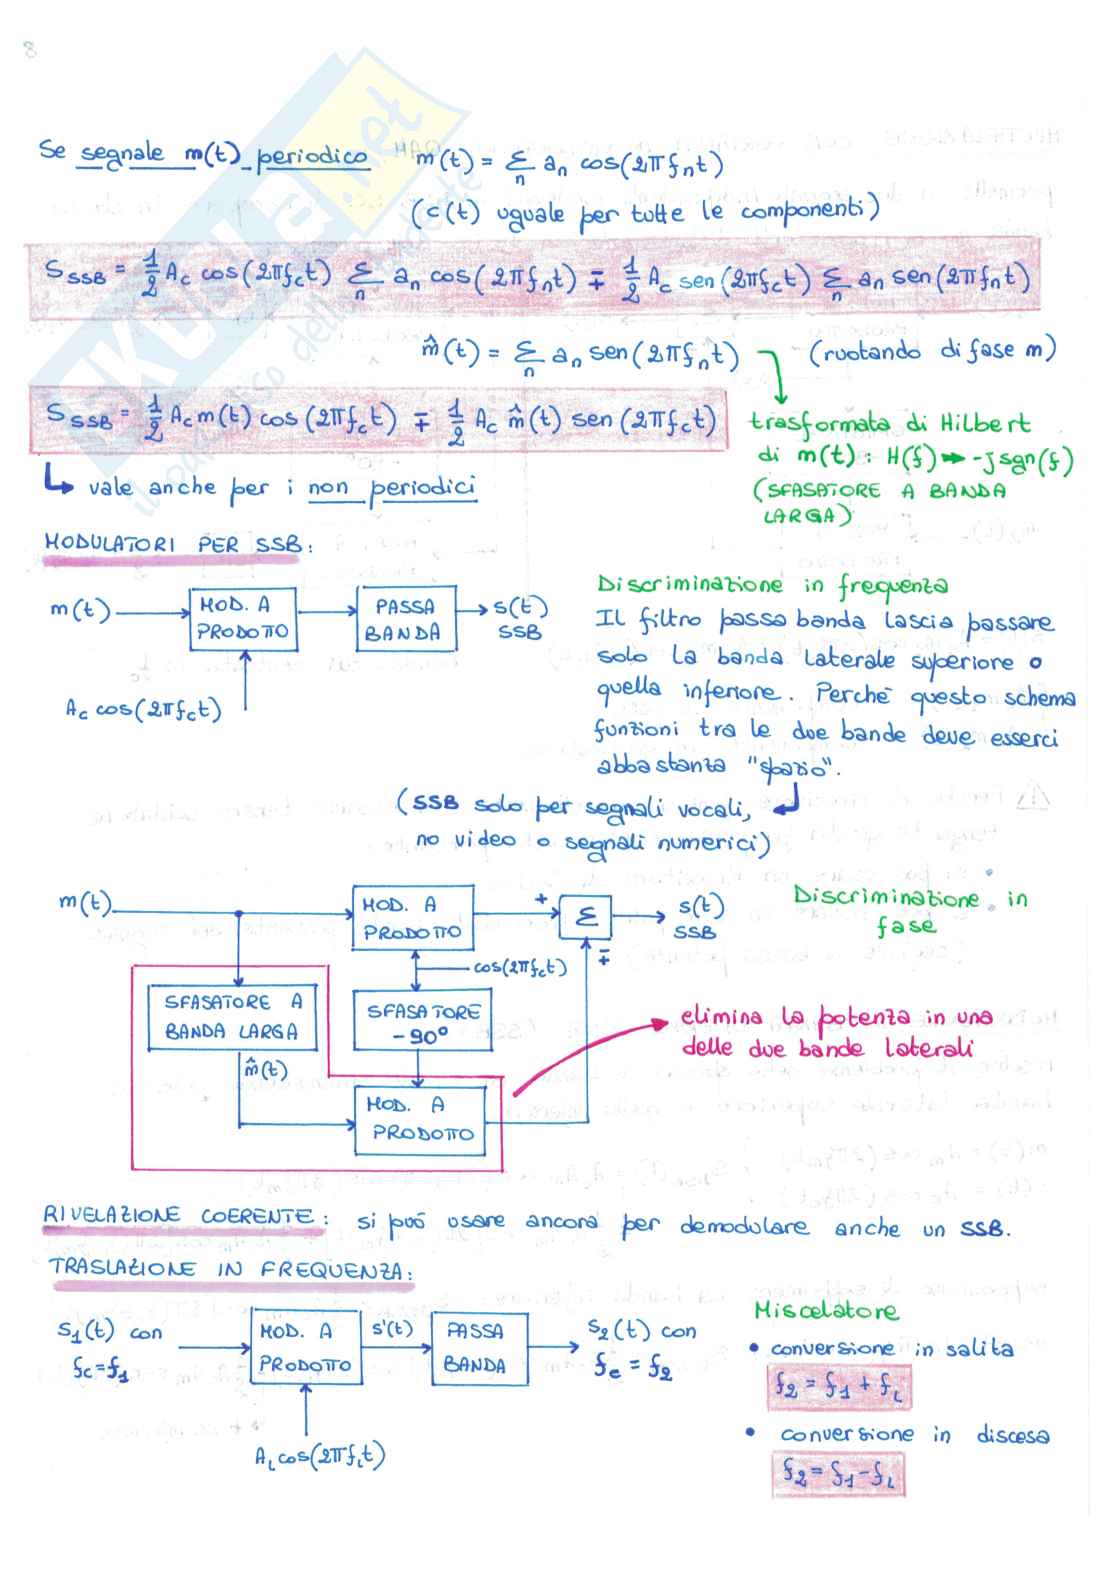 8
Se segnale m(t) periodico m(t) = Σ_n a_n cos(2πf_n t)
(c(t) uguale per tutte le componenti)
S_SSB = 1/2 A_c cos(2πf_c t) Σ_n a_n cos(2πf_n t) ∓ 1/2 A_c sen(2πf_c t) Σ_n a_n sen(2πf_n t)
m̂(t) = Σ_n a_n sen(2πf_n t) (ruotando di fase m)
S_SSB = 1/2 A_c m(t) cos(2πf_c t) ∓ 1/2 A_c m̂(t) sen(2πf_c t)
trasformata di Hilbert
di m(t): H(f) → -jsgn(f)
(SFASATORE A BANDA
LARGA)
↳ vale anche per i non periodici
MODULATORI PER SSB:
m(t)
MOD. A
PRODOTTO
PASSA
BANDA
s(t)
SSB
A_c cos(2πf_c t)
Discriminazione in frequenza
Il filtro passa banda lascia passare
solo la banda laterale superiore o
quella inferiore. Perchè questo schema
funzioni tra le due bande deve esserci
abbastanza "spazio".
(SSB solo per segnali vocali,
no video o segnali numerici)
m(t)
MOD. A
PRODOTTO
+
Σ
∓
s(t)
SSB
Discriminazione in
fase
cos(2πf_c t)
SFASATORE A
BANDA LARGA
SFASATORE
-90°
m̂(t)
MOD. A
PRODOTTO
elimina la potenza in una
delle due bande laterali
RIVELAZIONE COERENTE: si può usare ancora per demodulare anche un SSB.
TRASLAZIONE IN FREQUENZA:
S_1(t) con
f_c = f_1
MOD. A
PRODOTTO
s'(t)
PASSA
BANDA
S_2(t) con
f_c = f_2
A_L cos(2πf_L t)
Miscelatore
• conversione in salita
f_2 = f_1 + f_L
• conversione in discesa
f_2 = f_1 - f_L